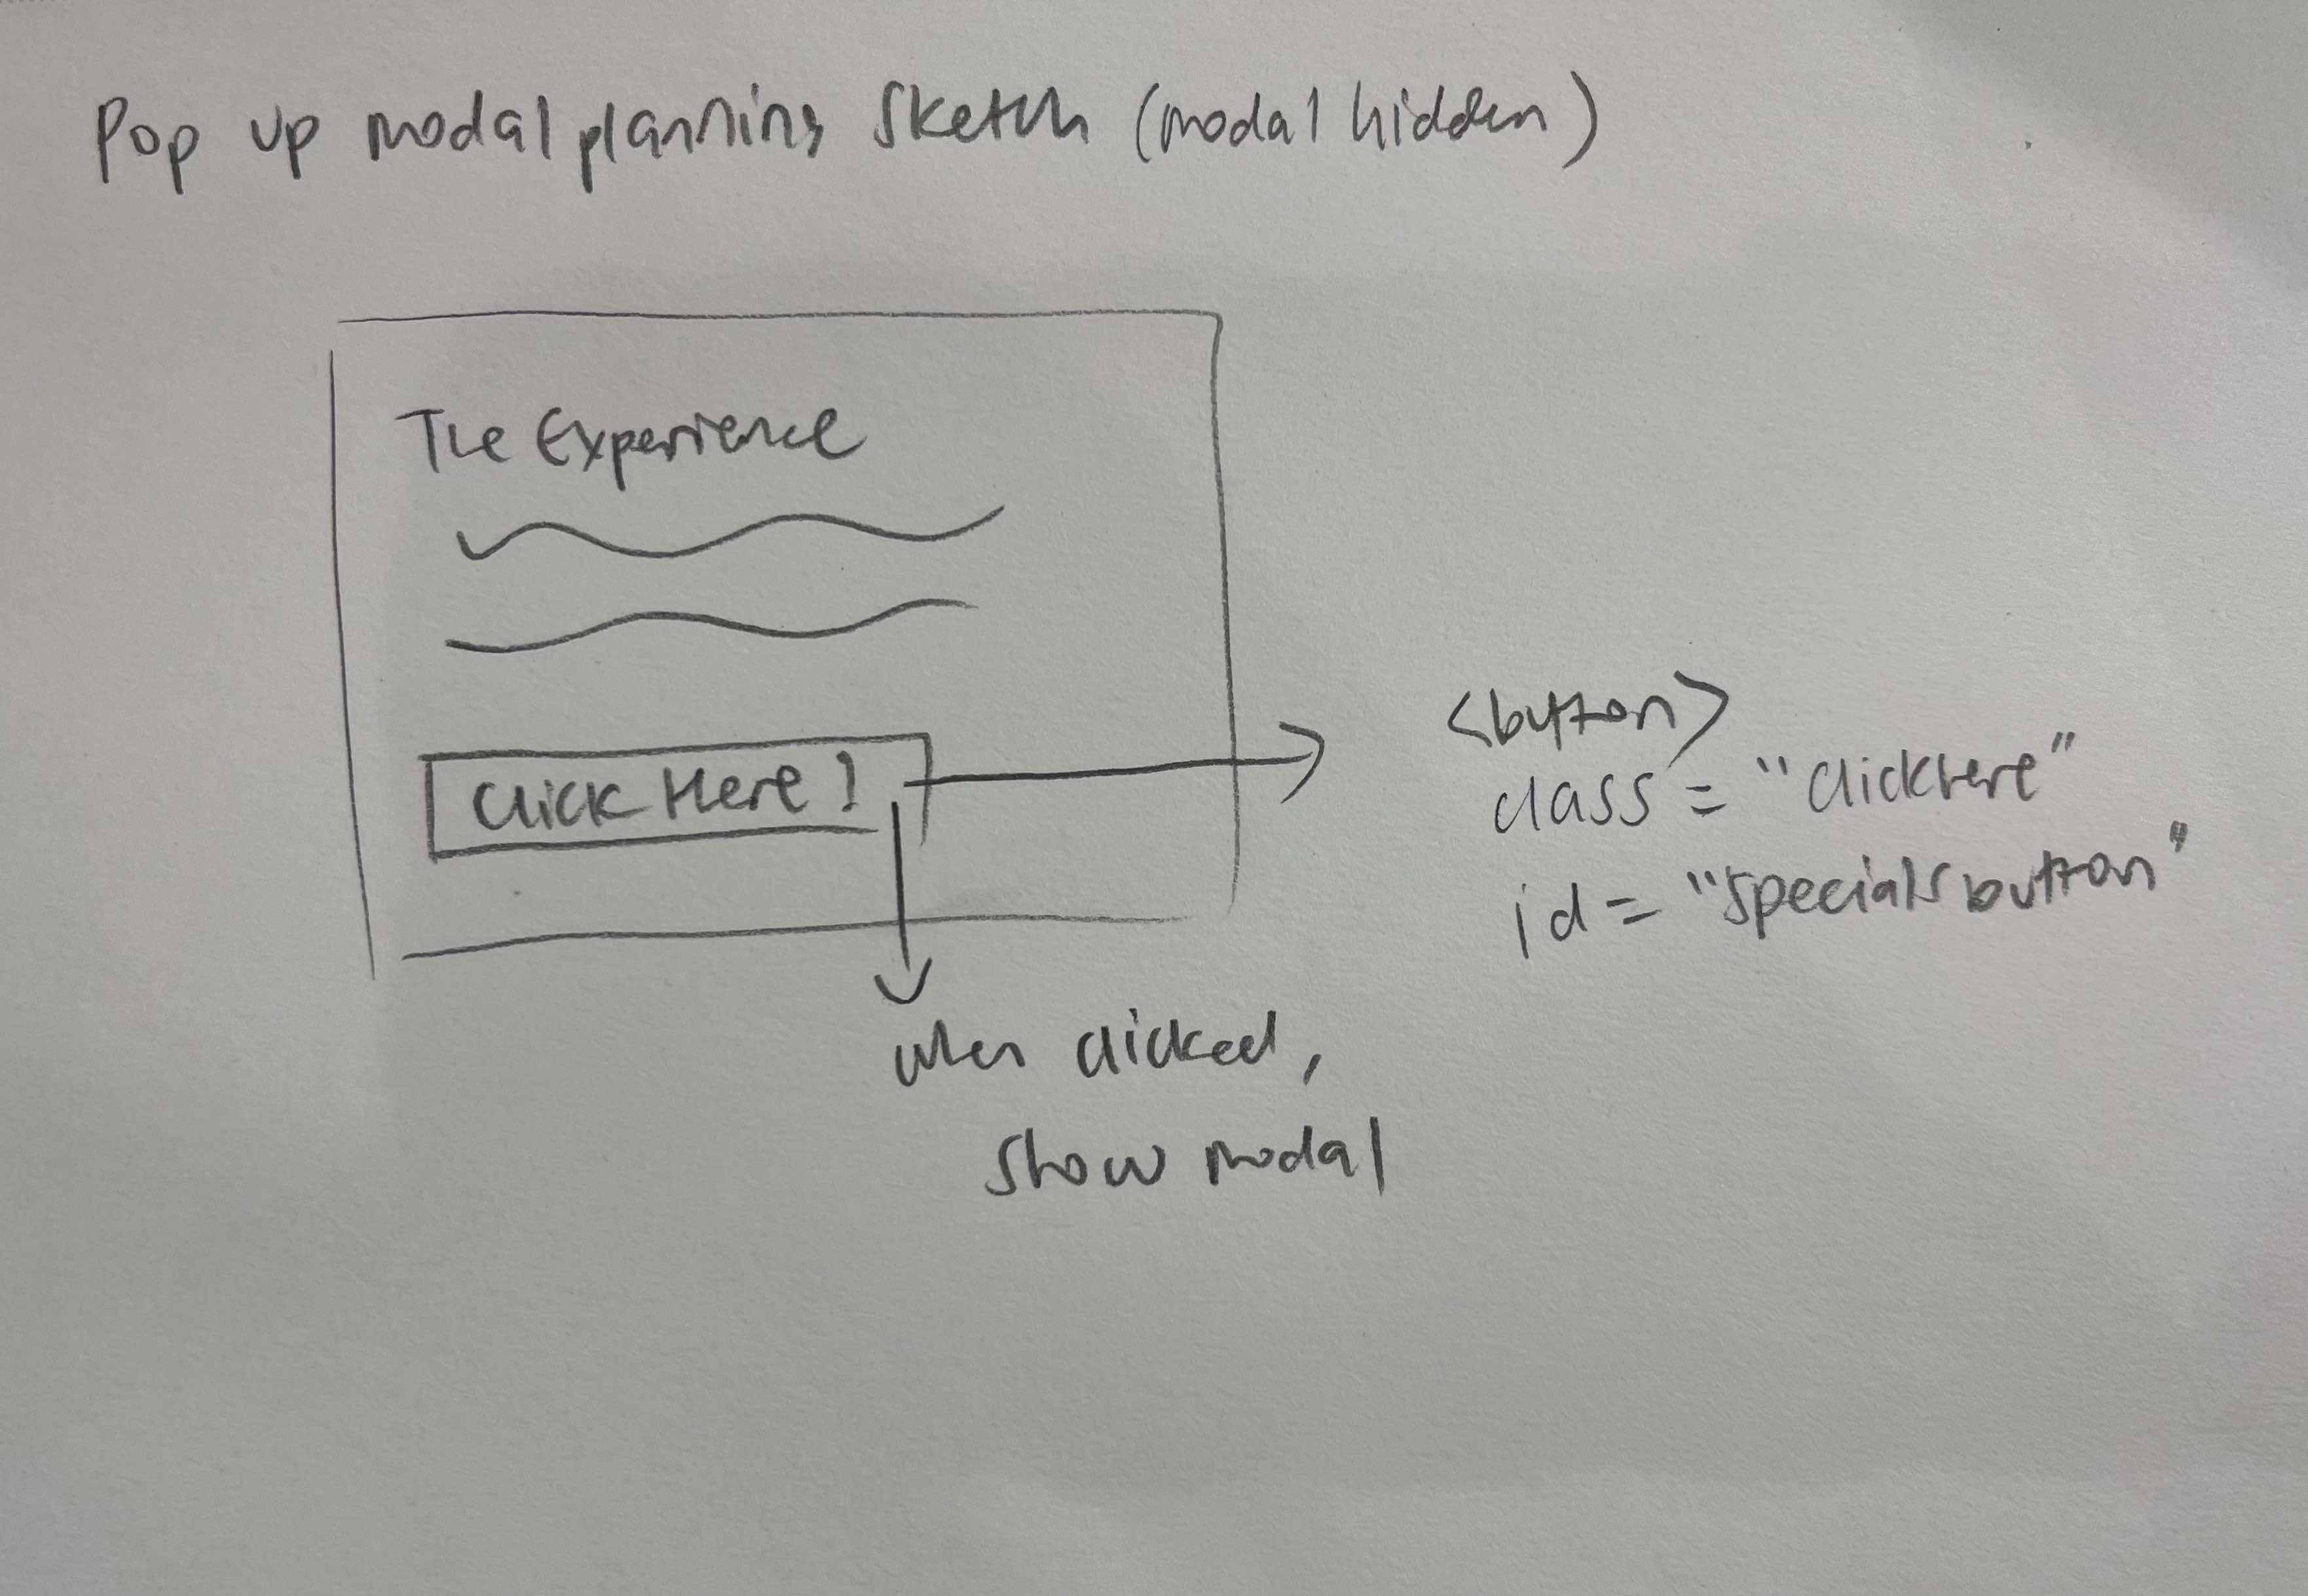 Pop up modal planning sketch (modal hidden)
The Experience
Click Here!
<button>
class = "clickhere"
id = "specialsbutton"
when clicked,
show modal